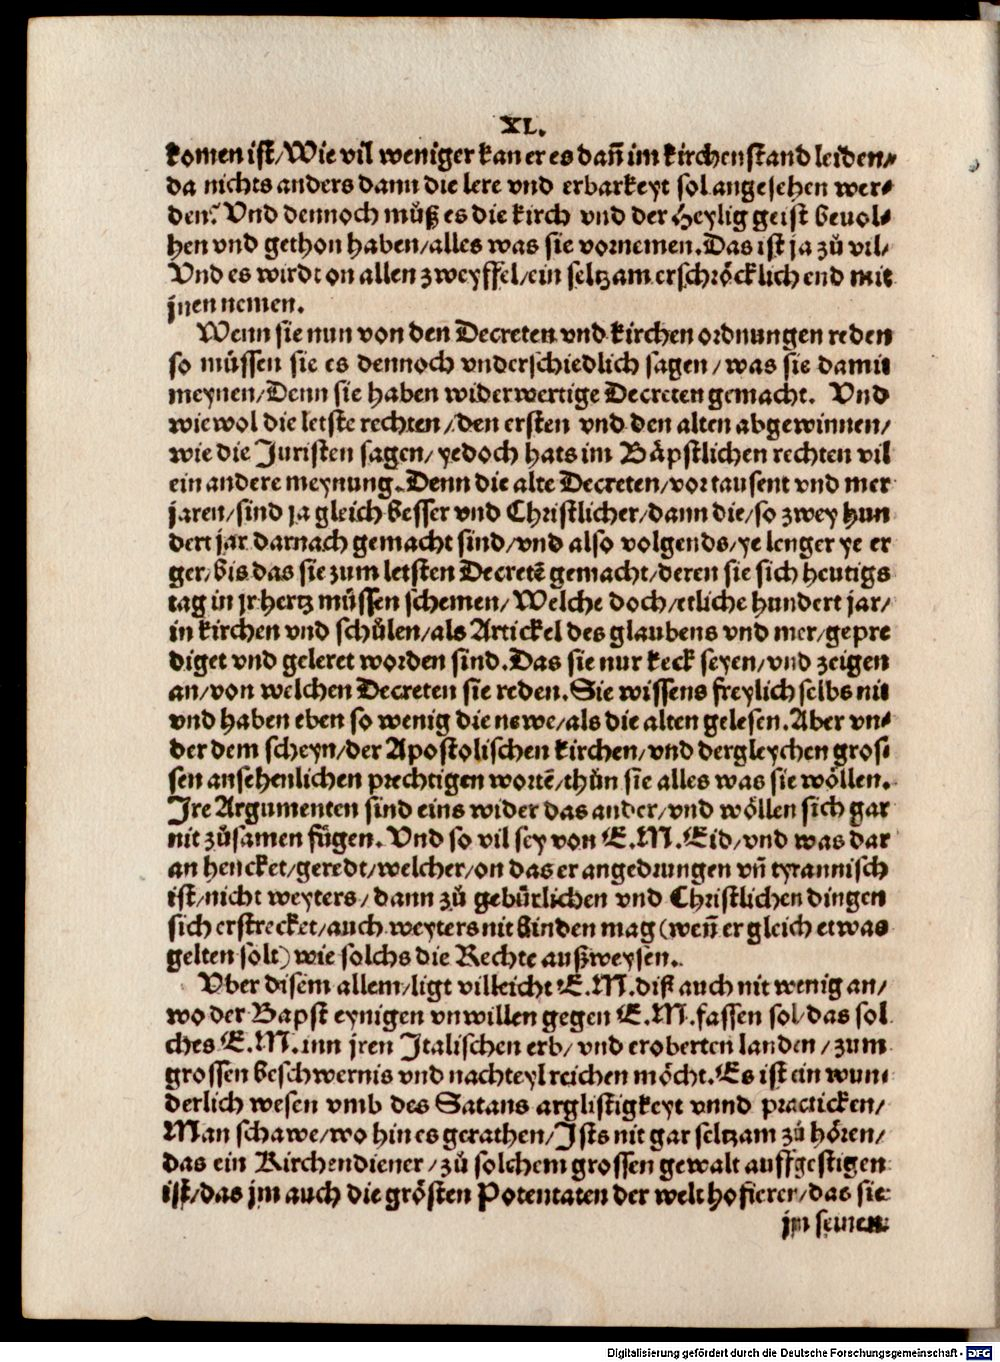 XL.
komen ist/Wie vil weniger kan er es dañ im kirchenstand leiden/
da nichts anders dann die lere vnd erbarkeyt sol angesehen wer⸗
den? Vnd dennoch můß es die kirch vnd der Heylig geist beuol⸗
hen vnd gethon haben/alles was sie vornemen. Das ist ja zů vil/
Vnd es wirdt on allen zweyffel/ein seltzam erschröcklich end mit
jnen nemen.
Wenn sie nun von den Decreten vnd kirchen ordnungen reden
so müssen sie es dennoch vnderschiedlich sagen/was sie damit
meynen/Denn sie haben widerwertige Decreten gemacht. Vnd
wiewol die letste rechten/den ersten vnd den alten abgewinnen/
wie die Juristen sagen/yedoch hats im Bäpstlichen rechten vil
ein andere meynung. Denn die alte Decreten/vor tausent vnd mer
jaren/sind ja gleich besser vnd Christlicher/dann die/so zwey hun
dert jar darnach gemacht sind/vnd also volgends/ye lenger ye er
ger/bis das sie zum letsten Decretē gemacht/deren sie sich heutigs
tag in jr hertz müssen schemen/Welche doch/etliche hundert jar/
in kirchen vnd schůlen/als Artickel des glaubens vnd mer/gepre
diget vnd geleret worden sind. Das sie nur keck seyen/vnd zeigen
an/von welchen Decreten sie reden. Sie wissens freylich selbs nit
vnd haben eben so wenig die newe/als die alten gelesen. Aber vn⸗
der dem scheyn/der Apostolischen kirchen/vnd dergleychen gros⸗
sen ansehenlichen prechtigen wortē/thůn sie alles was sie wöllen.
Jre Argumenten sind eins wider das ander/vnd wöllen sich gar
nit zůsamen fügen. Vnd so vil sey von E.M. Eid/vnd was dar
an hencket/geredt/welcher/on das er angedrungen vñ tyrannisch
ist/nicht weyters/dann zů gebürlichen vnd Christlichen dingen
sich erstrecket/auch weyters nit binden mag (weñ er gleich etwas
gelten solt) wie solchs die Rechte außweysen.
Vber disem allem/ligt villeicht E.M. diß auch nit wenig an/
wo der Bapst eynigen vnwillen gegen E.M. fassen sol/das sol
ches E.M. inn jren Italischen erb/vnd eroberten landen/zum
grossen beschwernis vnd nachteyl reichen möcht. Es ist ein wun⸗
derlich wesen vmb des Satans arglistigkeyt vnnd practicken/
Man schawe/wo hin es gerathen/Ists nit gar seltzam zů hören/
das ein Kirchendiener/zů solchem grossen gewalt auffgestigen
ist/das jm auch die grösten Potentaten der welt hofieren/das sie
jm seinen
Digitalisierung gefördert durch die Deutsche Forschungsgemeinschaft - DFG